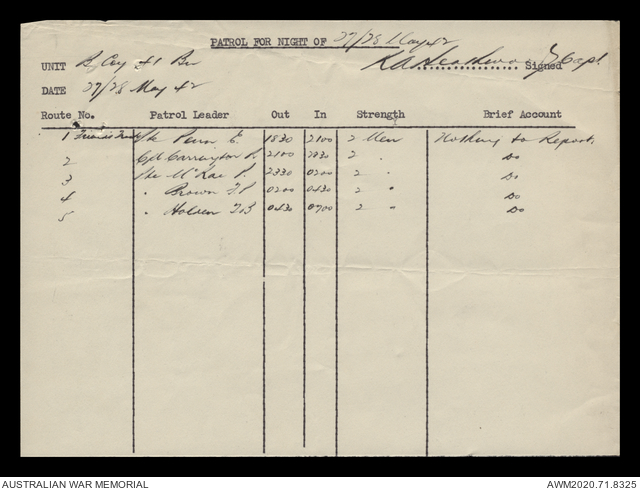 PATROL FOR NIGHT OF 27/28 May 42
UNIT B Coy 41 Bn Capt. Signed
DATE 27/28 May 42
Route No. Patrol Leader Out In Strength Brief Account
1 Pte Penn E. 1830 2100 2 Men Nothing to Report.
2 Cpl Carrington R. 2100 2330 2 " Do
3 Pte McRae P. 2330 0200 2 " Do
4 " Brown F.P. 0200 0430 2 " Do
5 " Holden 0430 0700 2 " Do
AUSTRALIAN WAR MEMORIAL AWM2020.71.8325